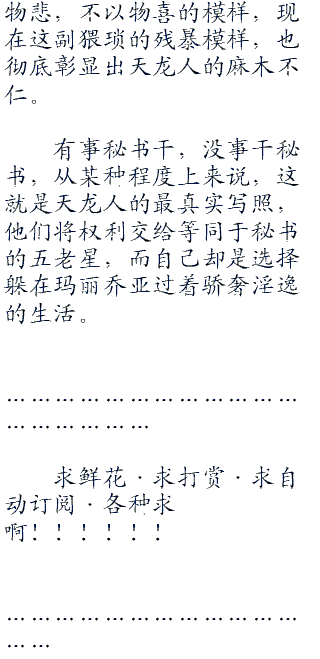 物悲，不以物喜的模样，现
在这副猥琐的残暴模样，也
彻底彰显出天龙人的麻木不
仁。
有事秘书干，没事干秘
书，从某种程度上来说，这
就是天龙人的最真实写照，
他们将权利交给等同于秘书
的五老星，而自己却是选择
躲在玛丽乔亚过着骄奢淫逸
的生活。
…………………………………
………………
求鲜花·求打赏·求自
动订阅·各种求
啊！！！！！！
…………………………………
……